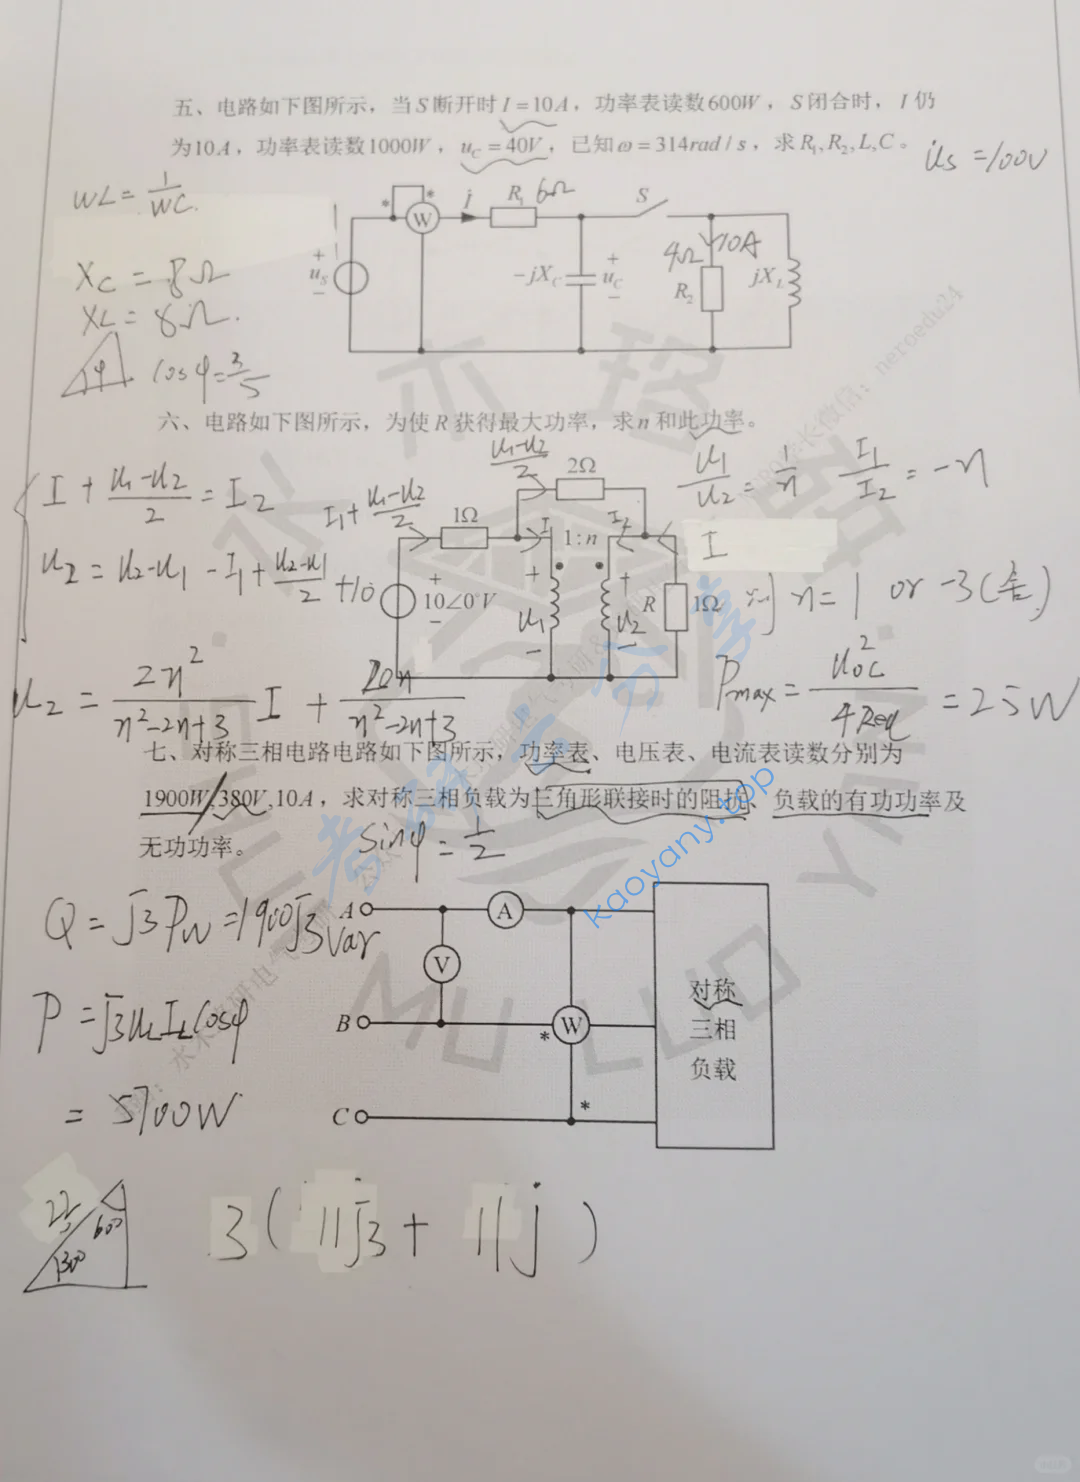 五、电路如下图所示，当S断开时I=10A，功率表读数600W，S闭合时，I仍
为10A，功率表读数1000W，u_C=40V，已知ω=314rad/s，求R₁,R₂,L,C。
u̇s=100V
WL=1/WC.
XC=8Ω
XL=8Ω.
φ cosφ=3/5
* * W İ R₁ 6Ω S
+ uS −
−jXC + uC −
4Ω 10A R₂ jXL
六、电路如下图所示，为使R获得最大功率，求n和此功率。
I+(u₁-u₂)/2=I₂
u₂=u₂-u₁-I₁+(u₂-u₁)/2+10
u₂=2n²/(n²-2n+3) I+20n/(n²-2n+3)
I₁+(u₁-u₂)/2
(u₁-u₂)/2
2Ω
1Ω I 1:n I₂ I
+ 10∠0°V −
+ u₁ − + u₂ − R 1Ω
u₁/u₂=1/n I₁/I₂=-n
n=1 or -3(舍)
Pmax=uoc²/4Req=25W
七、对称三相电路电路如下图所示，功率表、电压表、电流表读数分别为
1900W,380V,10A，求对称三相负载为三角形联接时的阻抗、负载的有功功率及
无功功率。
sinφ=1/2
Q=√3PW=1900√3Var
P=√3uLILcosφ
=5700W
A A
V
B * W
C *
对称
三相
负载
22 60° 30°
3(11√3+11j)
水木珞研
考研云分享
kaoyany.top
MULUO